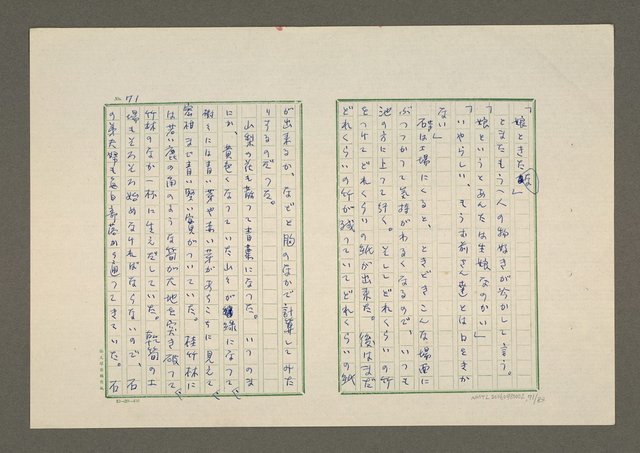 「娘ときたな」
とまたもう一人の物好きが冷かして言う。
「娘というとあんたは生娘なのかい」
「いやらしい、もうお前さん達とは口をきか
ない」
石は工場にくると、ときどきこんな場面に
ぶつつかって気持がわるくなるので、いつも
池の方に上って行く。そしどれくらいの竹
をつけてどれくらいの紙が出来た。後はまだ
どれくらいの竹が残っていてどれくらいの紙
No. 71
が出来るか、などと胸のなかで計算してみた
りするのだった。
山梨の花も散って青葉になった。いつのま
にか、黄色くなっていた山々が緑になって、
樹々には青い芽や赤い芽があちこちに見えて
蜜柑まで青い堅い実がついていた。桂竹林に
は若い鹿の角のような筍が大地を突き破って、
竹林のなか一杯に生えだしていた。乾筍の工
場もそろそろ始めなければならないので、石
の弟夫婦も毎日部落から通ってきていた。石
NMTL20060450002 71/88